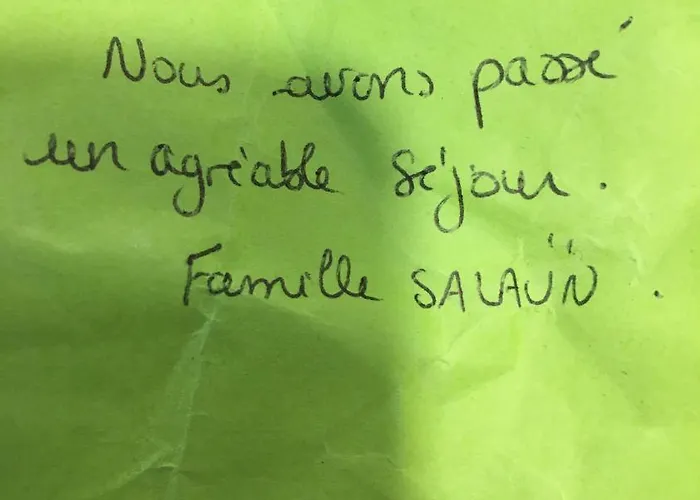 Nous avons passé
un agréable séjour.
Famille SALAÜN.